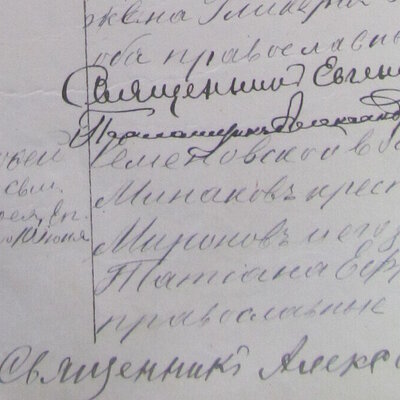 жена Гликерія
оба православны
Священникъ Евгені
Псаломщикъ Александ
Семеновской вол
Минаковъ крест
Мироновъ и его з
Татіана Ефр
православные
Священникъ Алекса